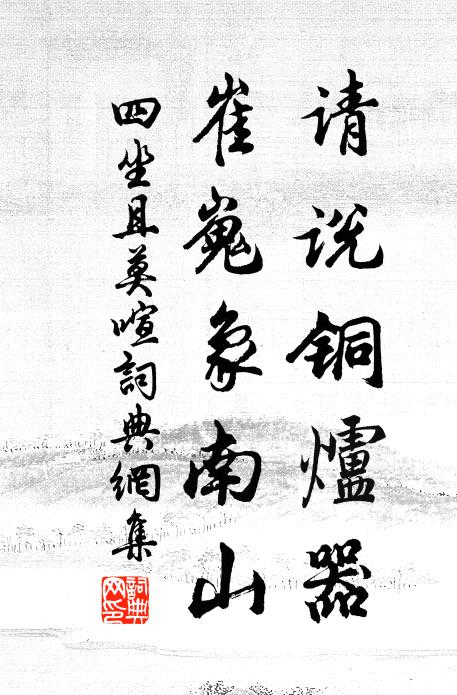 请说铜爐器
崔嵬象南山
四坐且莫喧詞典網集
詞典